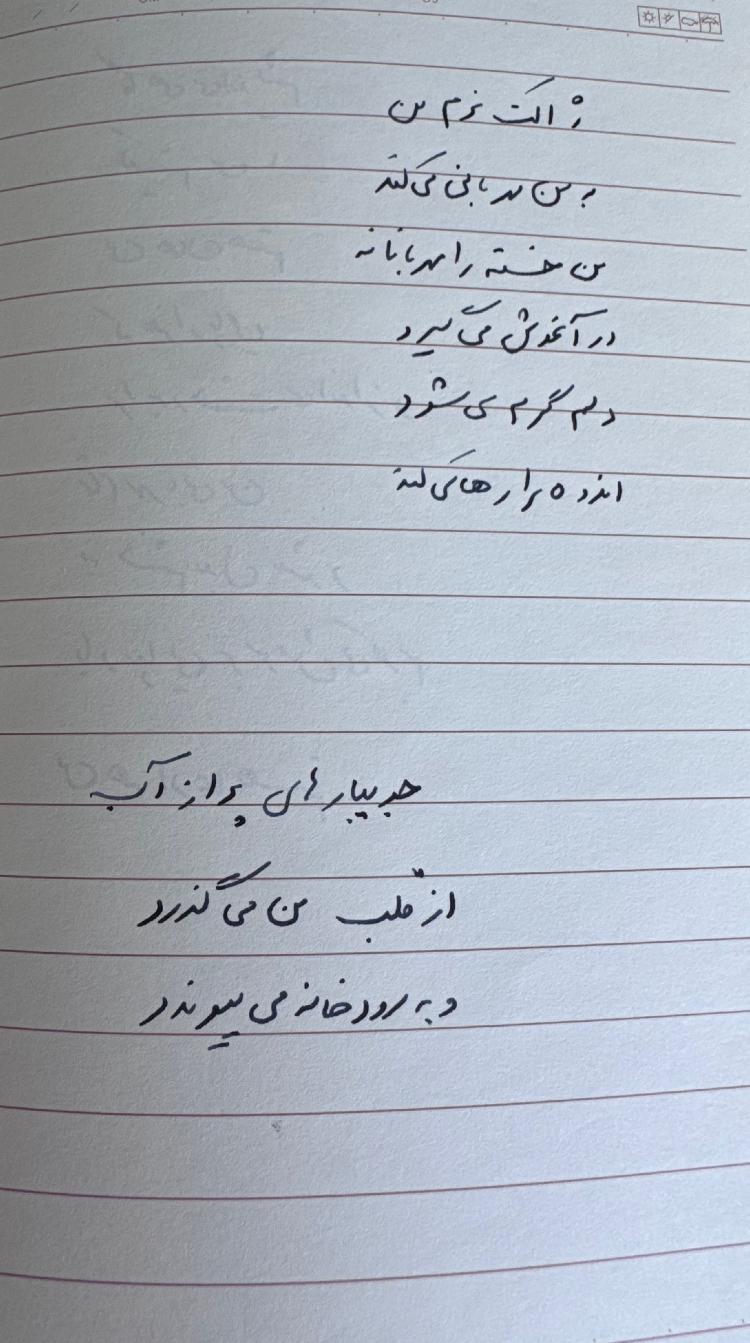 ژاکت نرم من
به من مهربانی می‌کند
من خسته را مهربانانه
در آغوش می‌گیرد
دلم گرم می‌شود
اندوه مرا رها می‌کند
جویبارهای پر از آب
از قلب من می‌گذرد
و به رودخانه می‌پیوندد